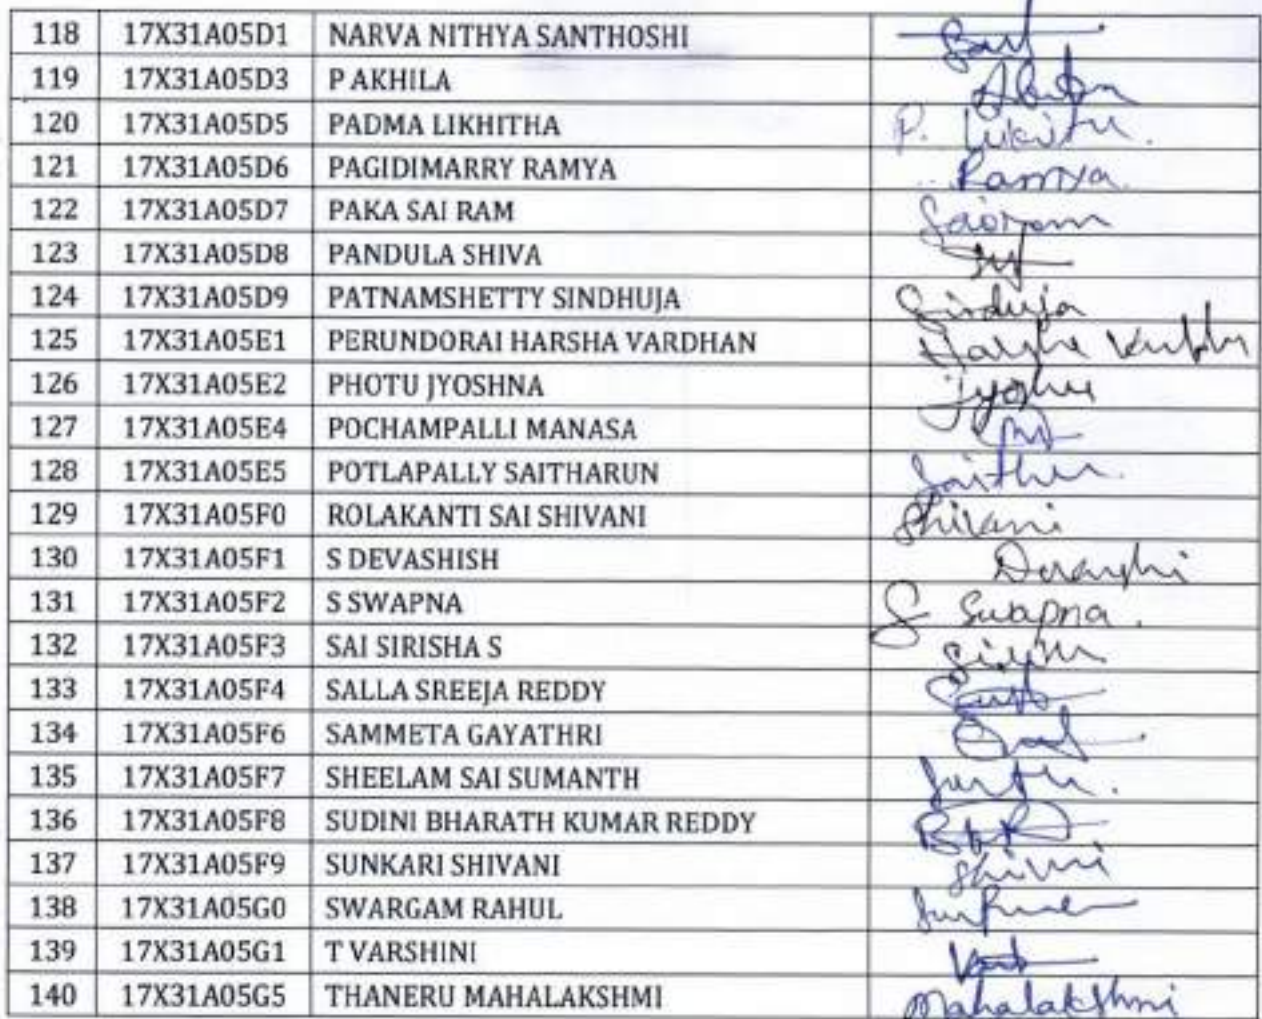 118 17X31A05D1 NARVA NITHYA SANTHOSHI
119 17X31A05D3 P AKHILA
120 17X31A05D5 PADMA LIKHITHA P.
121 17X31A05D6 PAGIDIMARRY RAMYA Ramya
122 17X31A05D7 PAKA SAI RAM Sairam
123 17X31A05D8 PANDULA SHIVA
124 17X31A05D9 PATNAMSHETTY SINDHUJA Sinduja
125 17X31A05E1 PERUNDORAI HARSHA VARDHAN
126 17X31A05E2 PHOTU JYOSHNA
127 17X31A05E4 POCHAMPALLI MANASA
128 17X31A05E5 POTLAPALLY SAITHARUN
129 17X31A05F0 ROLAKANTI SAI SHIVANI Shivani
130 17X31A05F1 S DEVASHISH
131 17X31A05F2 S SWAPNA S Swapna.
132 17X31A05F3 SAI SIRISHA S
133 17X31A05F4 SALLA SREEJA REDDY
134 17X31A05F6 SAMMETA GAYATHRI
135 17X31A05F7 SHEELAM SAI SUMANTH
136 17X31A05F8 SUDINI BHARATH KUMAR REDDY
137 17X31A05F9 SUNKARI SHIVANI
138 17X31A05G0 SWARGAM RAHUL
139 17X31A05G1 T VARSHINI
140 17X31A05G5 THANERU MAHALAKSHMI Mahalakshmi